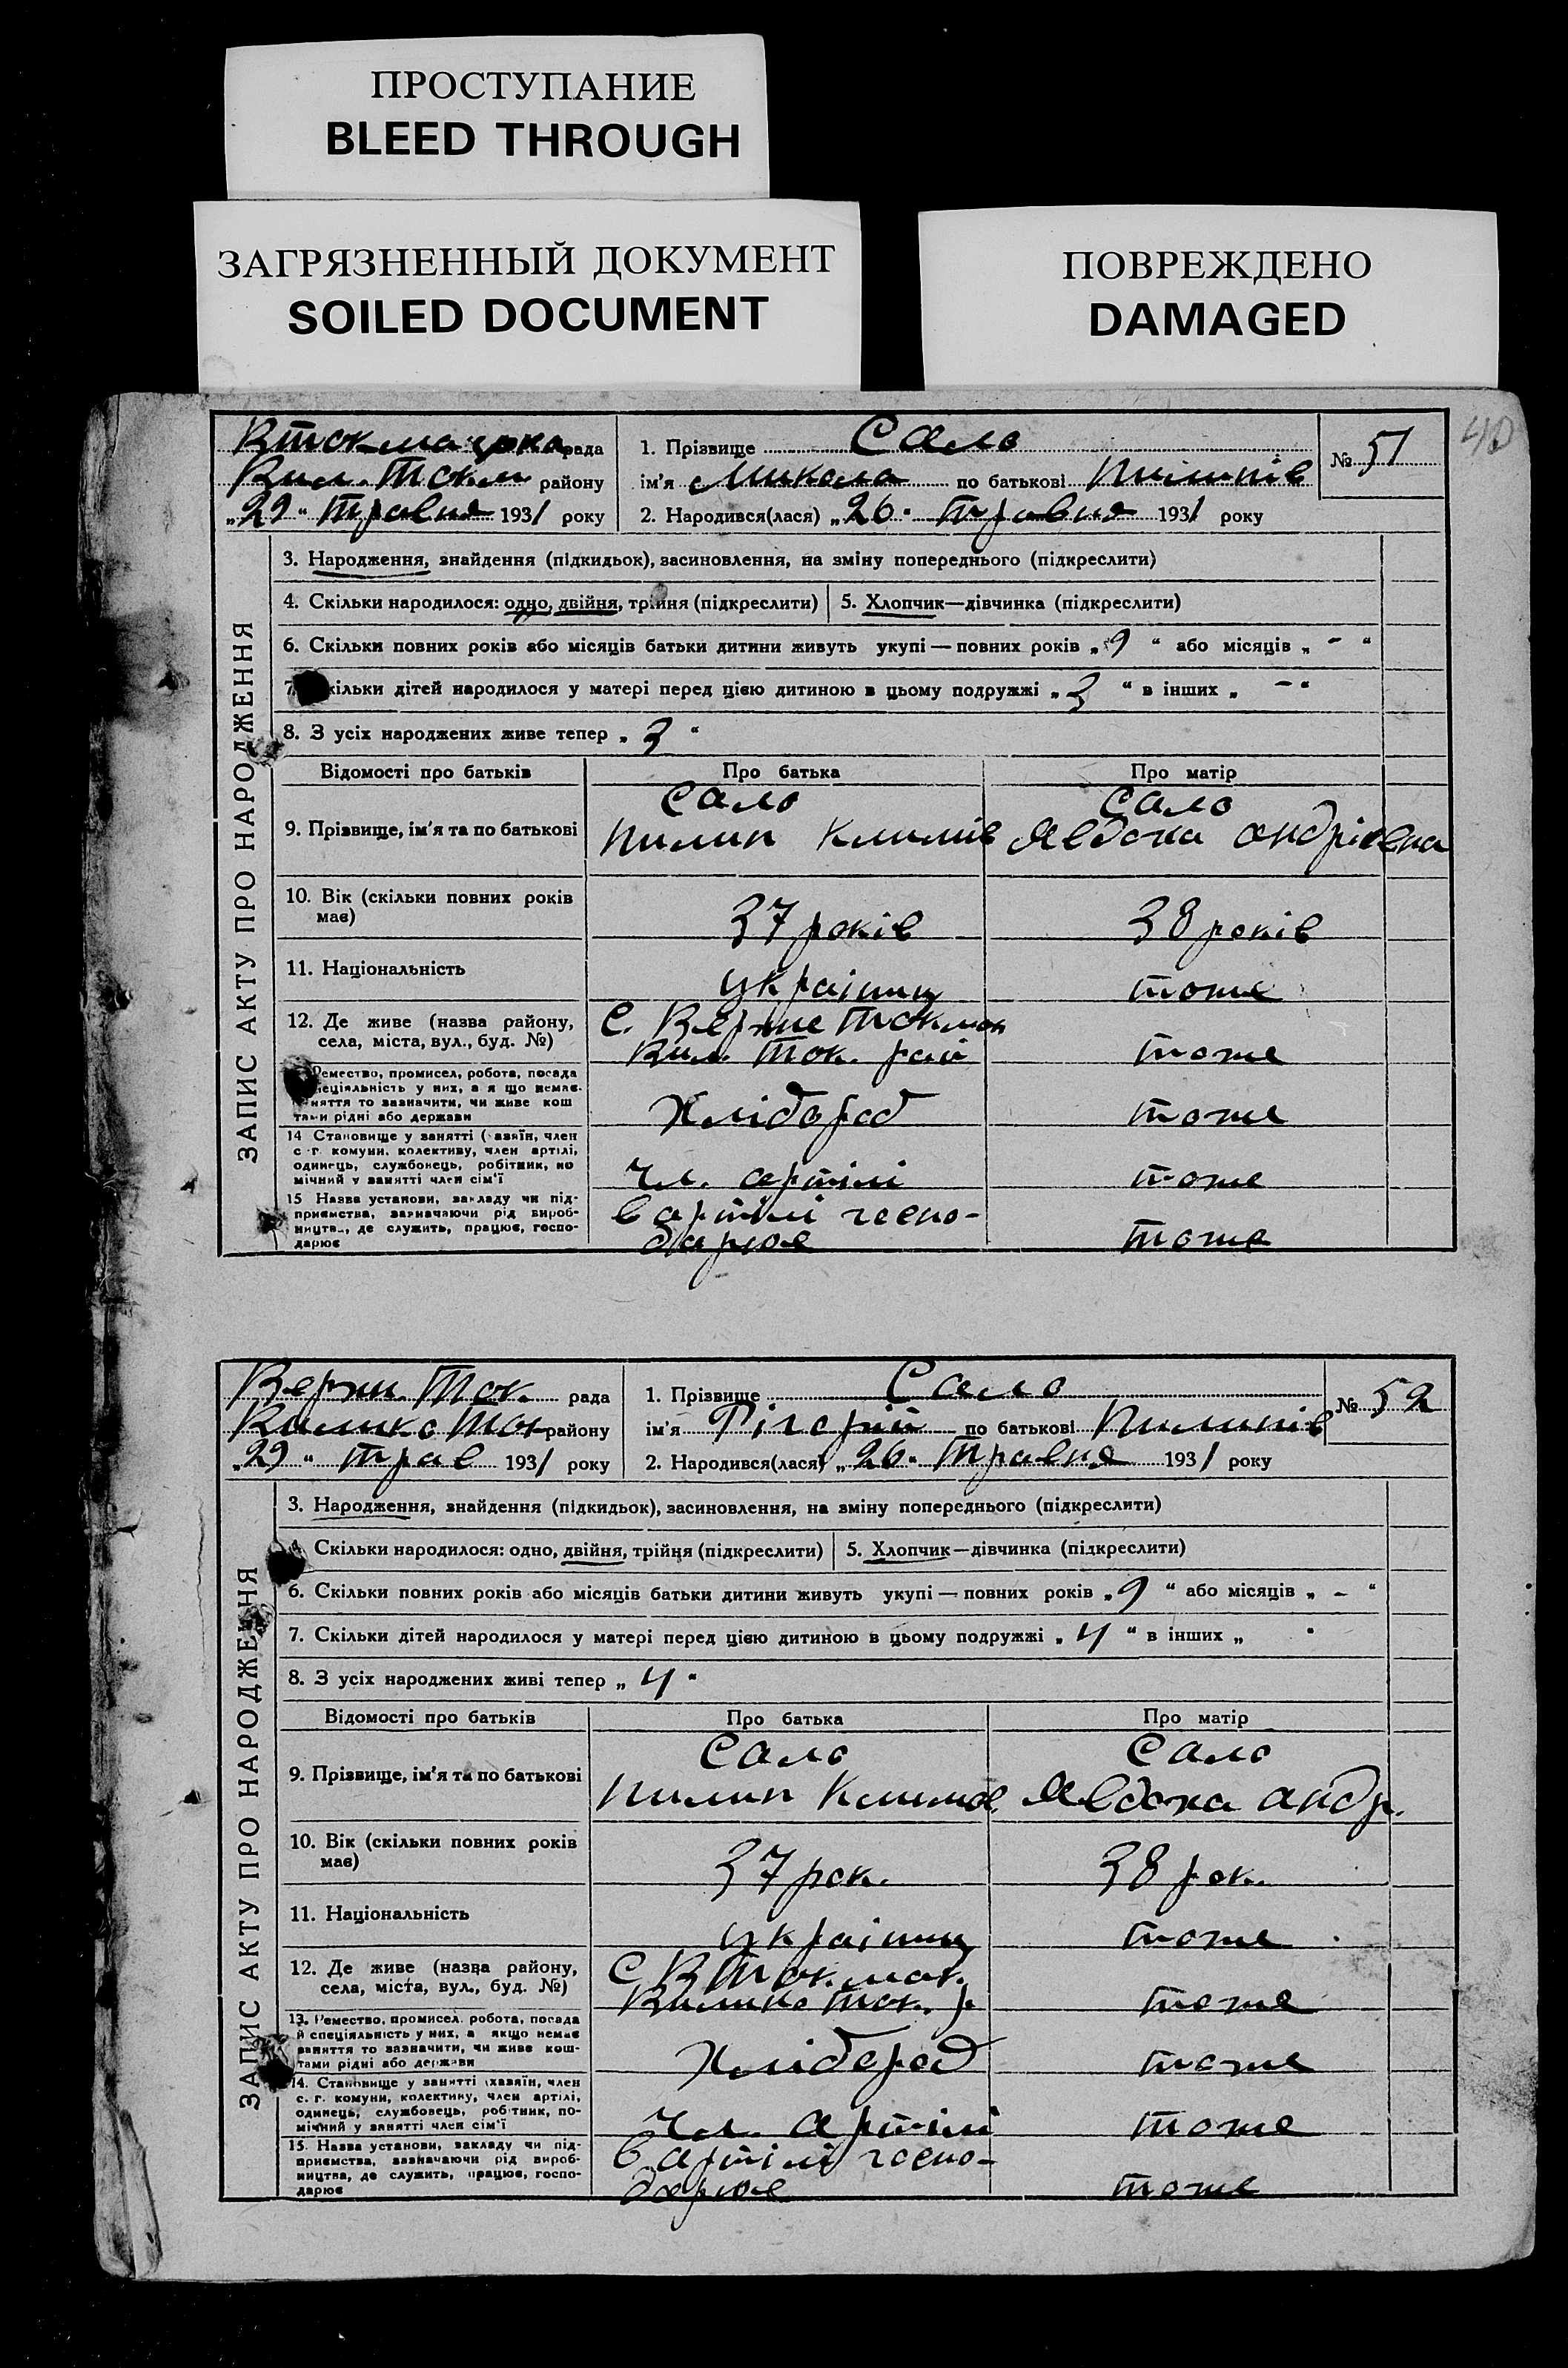 ПРОСТУПАНИЕ
BLEED THROUGH
ЗАГРЯЗНЕННЫЙ ДОКУМЕНТ
SOILED DOCUMENT
ПОВРЕЖДЕНО
DAMAGED
40
Втокмацрка рада
Вил. Токм району
„29“ травня 1931 року
1. Прізвище Сало
ім'я Микола по батькові Пилипів
№ 51
2. Народився(лася) „26“ травня 1931 року
ЗАПИС АКТУ ПРО НАРОДЖЕННЯ
3. Народження, знайдення (підкидьок), засиновлення, на зміну попереднього (підкреслити)
4. Скільки народилося: одно, двійня, трійня (підкреслити) 5. Хлопчик—дівчинка (підкреслити)
6. Скільки повних років або місяців батьки дитини живуть укупі — повних років „9“ або місяців „-“
7. кільки дітей народилося у матері перед цією дитиною в цьому подружжі „3“ в інших „-“
8. З усіх народжених живе тепер „3“
Відомості про батьків Про батька Про матір
9. Прізвище, ім'я та по батькові
Сало Сало
Пилип Климів Явдоха Андрієвна
10. Вік (скільки повних років має)
37 років 38 років
11. Національність українц тоже
12. Де живе (назва району, села, міста, вул., буд. №)
С. Верхне Токмак
Вил. Ток. рай тоже
Ремество, промисел, робота, посада
пеціяльність у них, а я що немає.
няття то зазначити, чи живе кош
тами рідні або держави
Хлібороб тоже
14 Становище у занятті (хазяїн, член
с.-г. комуни, колективу, член артілі,
одинець, службовець, робітник, по
мічний у занятті член сім'ї
Чл. артілі тоже
15 Назва установи, закладу чи під-
приємства, зазначаючи рід вироб-
ництв, де служить, працює, госпо-
дарює
В артілі госпо-
дарює тоже
Верхн. Ток. рада
Велико Ток району
„29“ трав 1931 року
1. Прізвище Сало
ім'я Грігорій по батькові Пилипів
№ 52
2. Народився(лася) „26“ травня 1931 року
ЗАПИС АКТУ ПРО НАРОДЖЕННЯ
3. Народження, знайдення (підкидьок), засиновлення, на зміну попереднього (підкреслити)
4. Скільки народилося: одно, двійня, трійня (підкреслити) 5. Хлопчик—дівчинка (підкреслити)
6. Скільки повних років або місяців батьки дитини живуть укупі — повних років „9“ або місяців „-“
7. Скільки дітей народилося у матері перед цією дитиною в цьому подружжі „4“ в інших „ “
8. З усіх народжених живі тепер „4“
Відомості про батьків Про батька Про матір
9. Прізвище, ім'я та по батькові
Сало Сало
Пилип Климов. Явдоха Андр.
10. Вік (скільки повних років має)
37 рок. 38 рок.
11. Національність українц тоже
12. Де живе (назва району, села, міста, вул., буд. №)
С В Токмак.
Велико Ток. р. тоже
13. Ремество, промисел, робота, посада
й спеціяльність у них, а якщо немає
заняття то зазначити, чи живе кош-
тами рідні або держави
Хлібороб тоже
14. Становище у занятті (хазяїн, член
с. г. комуни, колективу, член артілі,
одинець, службовець, робітник, по-
мічний у занятті член сім'ї
Чл. артілі тоже
15. Назва установи, закладу чи під-
приємства, зазначаючи рід вироб-
ництва, де служить, працює, госпо-
дарює
В артілі госпо-
дарює тоже